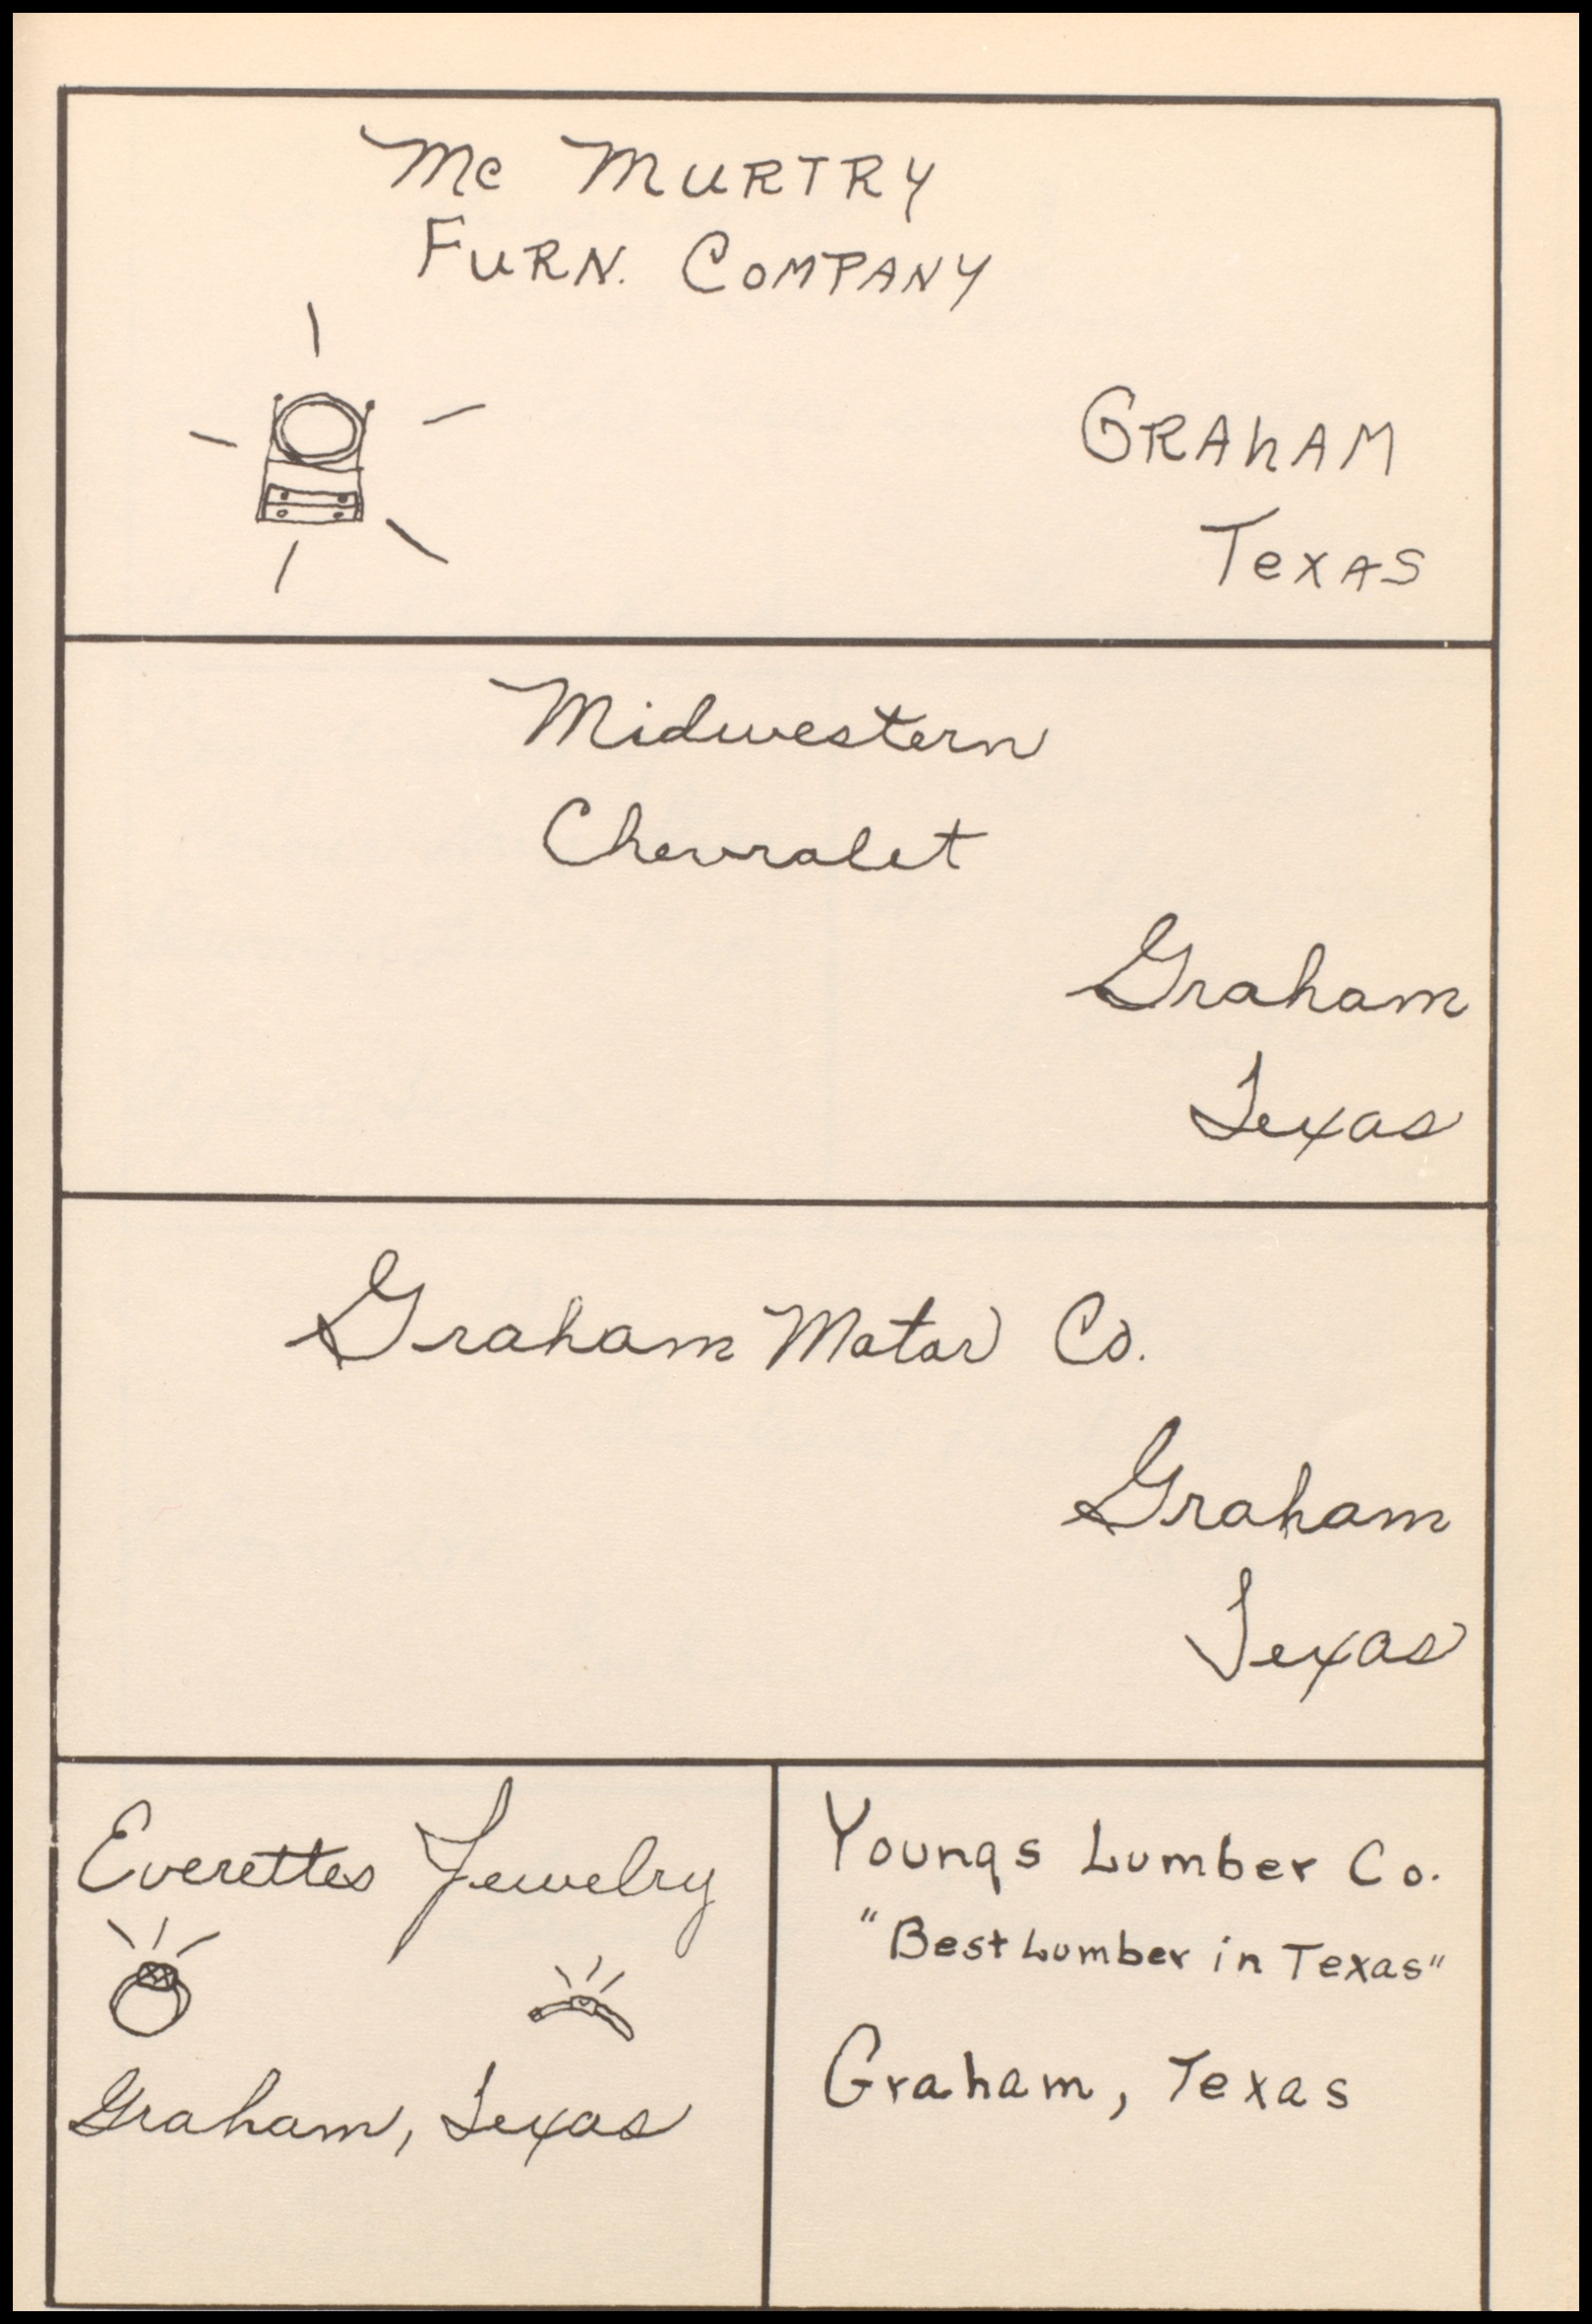 Mc MURTRY
FURN. COMPANY
GRAHAM
TEXAS
Midwestern
Chevrolet
Graham
Texas
Graham Motor Co.
Graham
Texas
Everettes Jewelry
Graham, Texas
Youngs Lumber Co.
"Best Lumber in Texas"
Graham, Texas